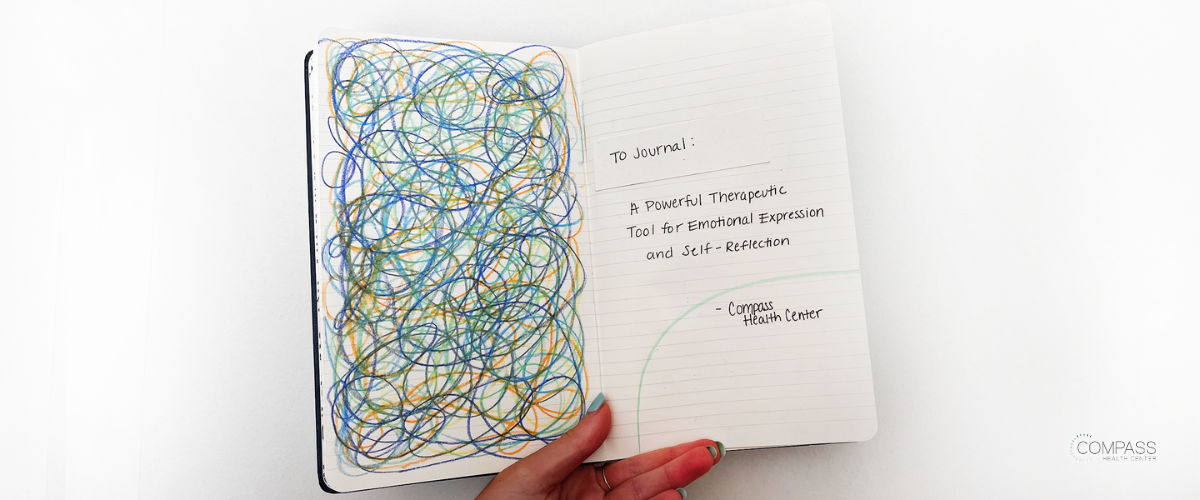 To Journal:
A Powerful Therapeutic
Tool for Emotional Expression
and Self-Reflection
- Compass
Health Center
COMPASS
HEALTH CENTER